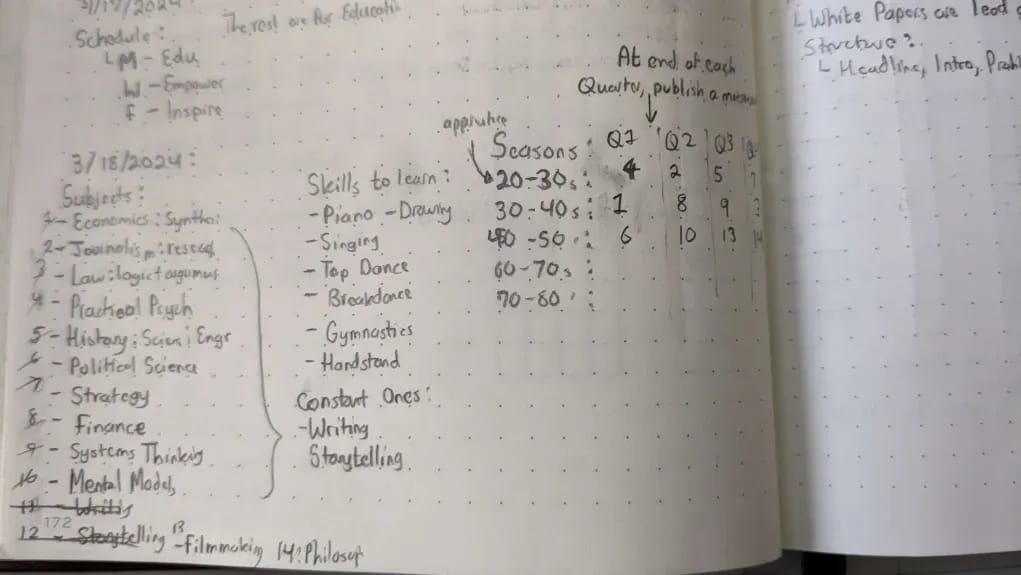 3/17/2024
The rest are for Educati
Schedule:
└ M - Edu
W - Empower
F - Inspire
3/18/2024:
Subjects:
1 - Economics: Synthe:
2 - Journalism: reseach
3 - Law: logic + argument
4 - Practical Psych
5 - History: Scien: Engr
6 - Political Science
7 - Strategy
8 - Finance
9 - Systems Thinking
10 - Mental Models
11 - Writing
12 - Storytelling 13 - Filmmaking 14: Philosop
172
Skills to learn:
- Piano - Drawing
- Singing
- Tap Dance
- Breakdance
- Gymnastics
- Handstand
Constant Ones:
- Writing
Storytelling
At end of each
Quarter, publish a
apprentice
Seasons: Q1 Q2 Q3 Q
20-30s: 4 2 5 7
30-40s: 1 8 9 3
40-50s: 6 10 13 14
60-70s:
70-80:
└ White Papers are lead
Structure?
└ Headline, Intro, Probl